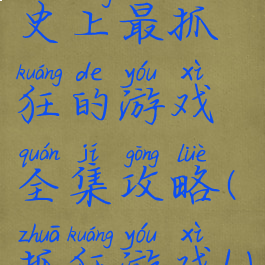 史上最抓
kuáng de yóu xì
狂的游戏
quán jí gōng lüè
全集攻略(
zhuā kuáng yóu xì
抓狂游戏小